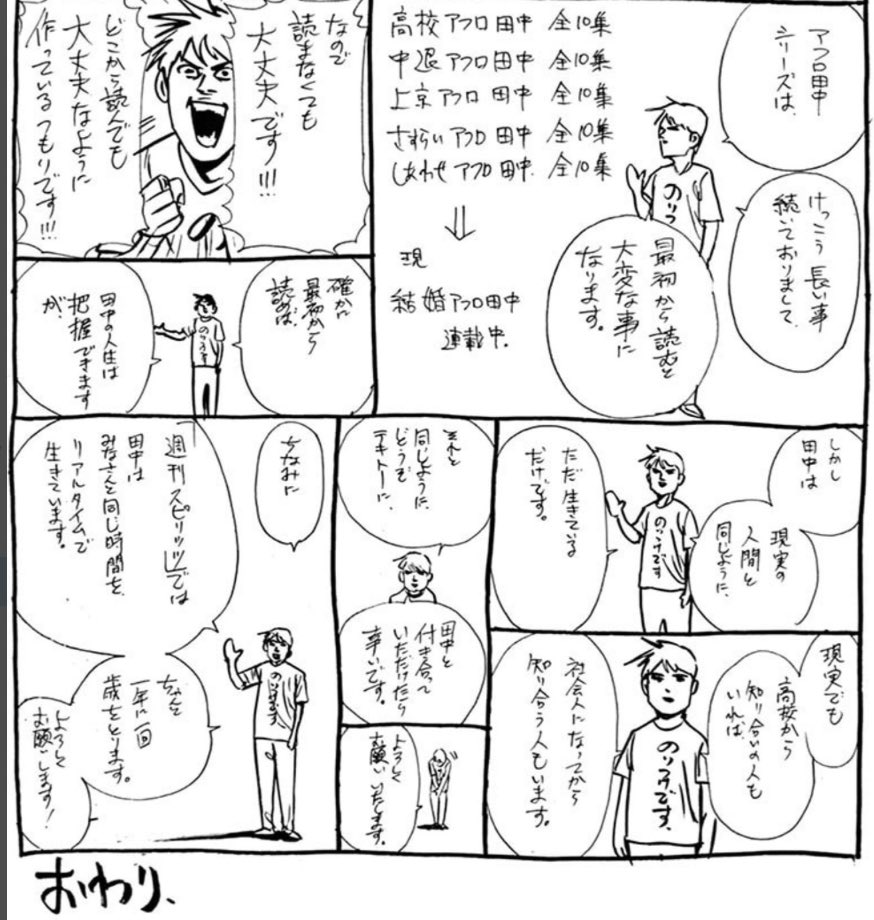 アフロ田中
シリーズは、
けっこう長い事
続いておりまして、
高校アフロ田中 全10集
中退アフロ田中 全10集
上京アフロ田中 全10集
さすらいアフロ田中 全10集
しあわせアフロ田中 全10集
現
結婚アフロ田中
連載中。
最初から読むと
大変な事に
なります。
のりつ
なので
読まなくても
大丈夫です!!!
どこから読んでも
大丈夫なように
作っているつもりです!!!
の
確かに
最初から
読めば、
田中の人生は
把握できます
が、
のりつけです
しかし
田中は
現実の
人間と
同じように、
ただ生きている
だけです。
のりつけです
現実でも
高校から
知り合いの人も
いれば、
社会人になってから
知り合う人もいます。
のりつけです、
それと
同じように、
どうぞ
テキトーに、
田中と
付き合って
いただけたら
幸いです。
よろしく
お願いいたします。
ちなみに
週刊スピリッツでは
田中は
みなさんと同じ時間を、
リアルタイムで
生きています。
のりつけです
ちゃんと
一年に一回
歳をとります。
よろしく
お願いします!
おわり、